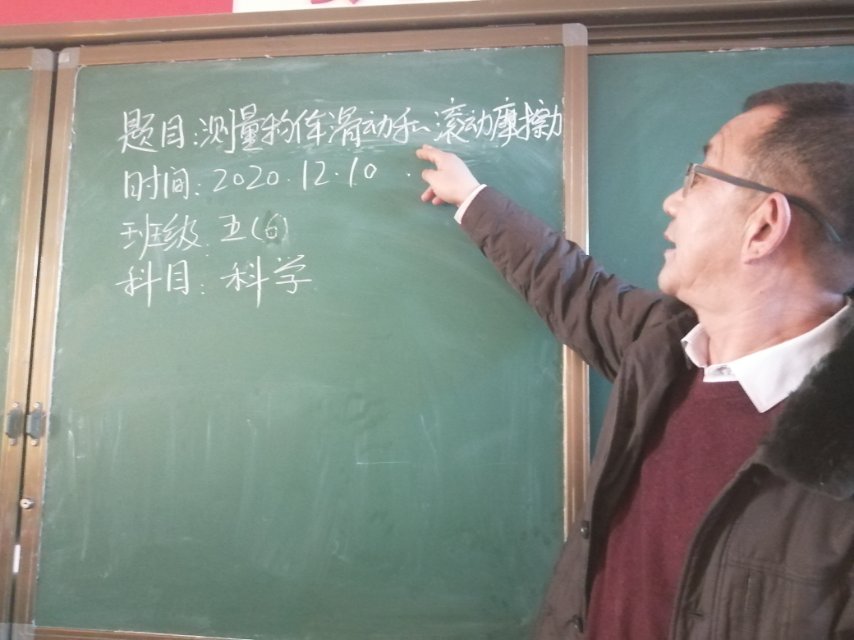 题目:测量物体滑动和滚动摩擦力
时间:2020.12.10.
班级:五(6)
科目:科学